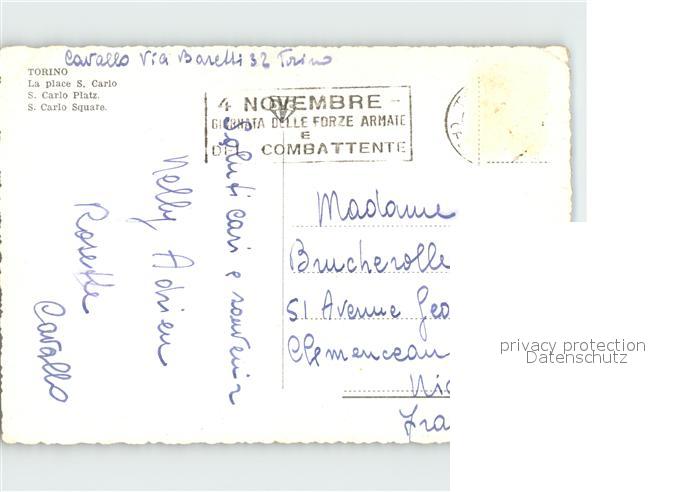 Cavallo Via Baretti 32 Torino
TORINO
La place S. Carlo
S. Carlo Platz.
S. Carlo Square.
4 NOVEMBRE -
GIORNATA DELLE FORZE ARMATE
E
DEL COMBATTENTE
Saluti cari e souvenir
Nelly Adrien
Rosette
Cavallo
Madame
Brucherolle
51 Avenue Geo
Clemenceau
Nic
Fra
privacy protection
Datenschutz